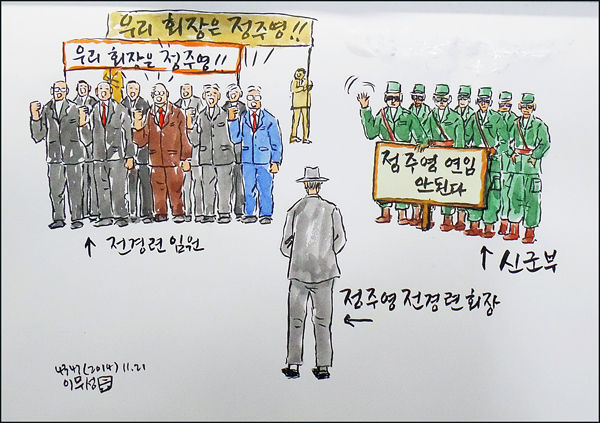 우리 회장은 정주영!!
우리 회장은 정주영!!
정주영 연임
안된다
↑ 전경련 임원
↑ 신군부
정주영 전경련 회장
←
4347(2014) 11.21
이무성